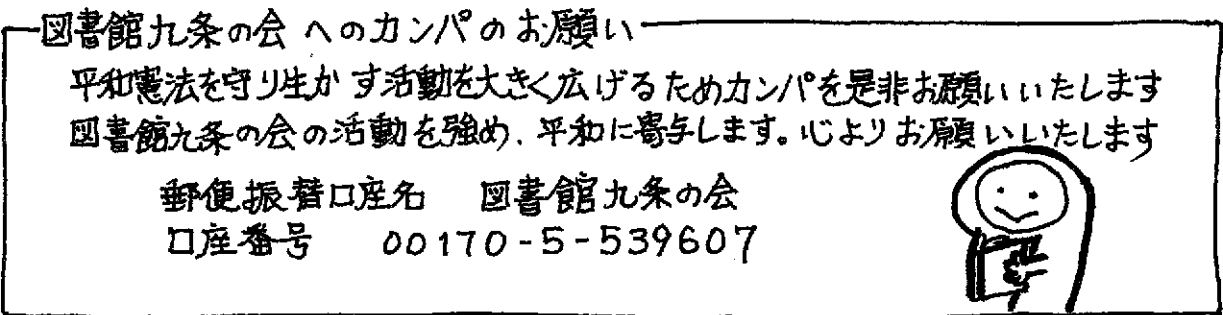 図書館九条の会 へのカンパのお願い
平和憲法を守り生かす活動を大きく広げるためカンパを是非お願いいたします
図書館九条の会の活動を強め、平和に寄与します。心よりお願いいたします
郵便振替口座名 図書館九条の会
口座番号 00170-5-539607